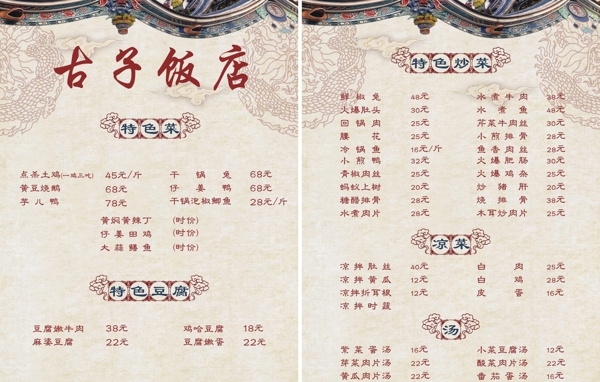 古子饭店
特色菜
点杀土鸡(一鸡三吃) 45元/斤 干锅兔 68元
黄豆烧鹅 68元 仔姜鸭 68元
芋儿鸭 78元 干锅泡椒鲫鱼 28元/斤
黄焖黄辣丁 (时价)
仔姜田鸡 (时价)
大蒜鳝鱼 (时价)
特色豆腐
豆腐嫩牛肉 38元 鸡哈豆腐 18元
麻婆豆腐 22元 豆腐嫩蛋 22元
特色炒菜
鲜椒兔 48元 水煮牛肉 38元
火爆肚头 30元 水煮鱼 48元
回锅肉 25元 芹菜牛肉丝 30元
腰花 25元 小煎排骨 38元
冷锅鱼 16元/斤 鱼香肉丝 28元
小煎鸭 32元 火爆肥肠 30元
青椒肉丝 25元 火爆鸡杂 25元
蚂蚁上树 20元 炒猪肝 20元
糖醋排骨 38元 烧排骨 38元
水煮肉片 28元 木耳炒肉片 25元
凉菜
凉拌肚丝 40元 白肉 25元
凉拌黄瓜 12元 白鸡 28元
凉拌折耳根 12元 皮蛋 16元
凉拌时蔬
汤
紫菜蛋汤 16元 小菜豆腐汤 12元
芽菜肉片汤 22元 酸菜肉片汤 22元
黄瓜肉片汤 22元 番茄蛋汤 16元